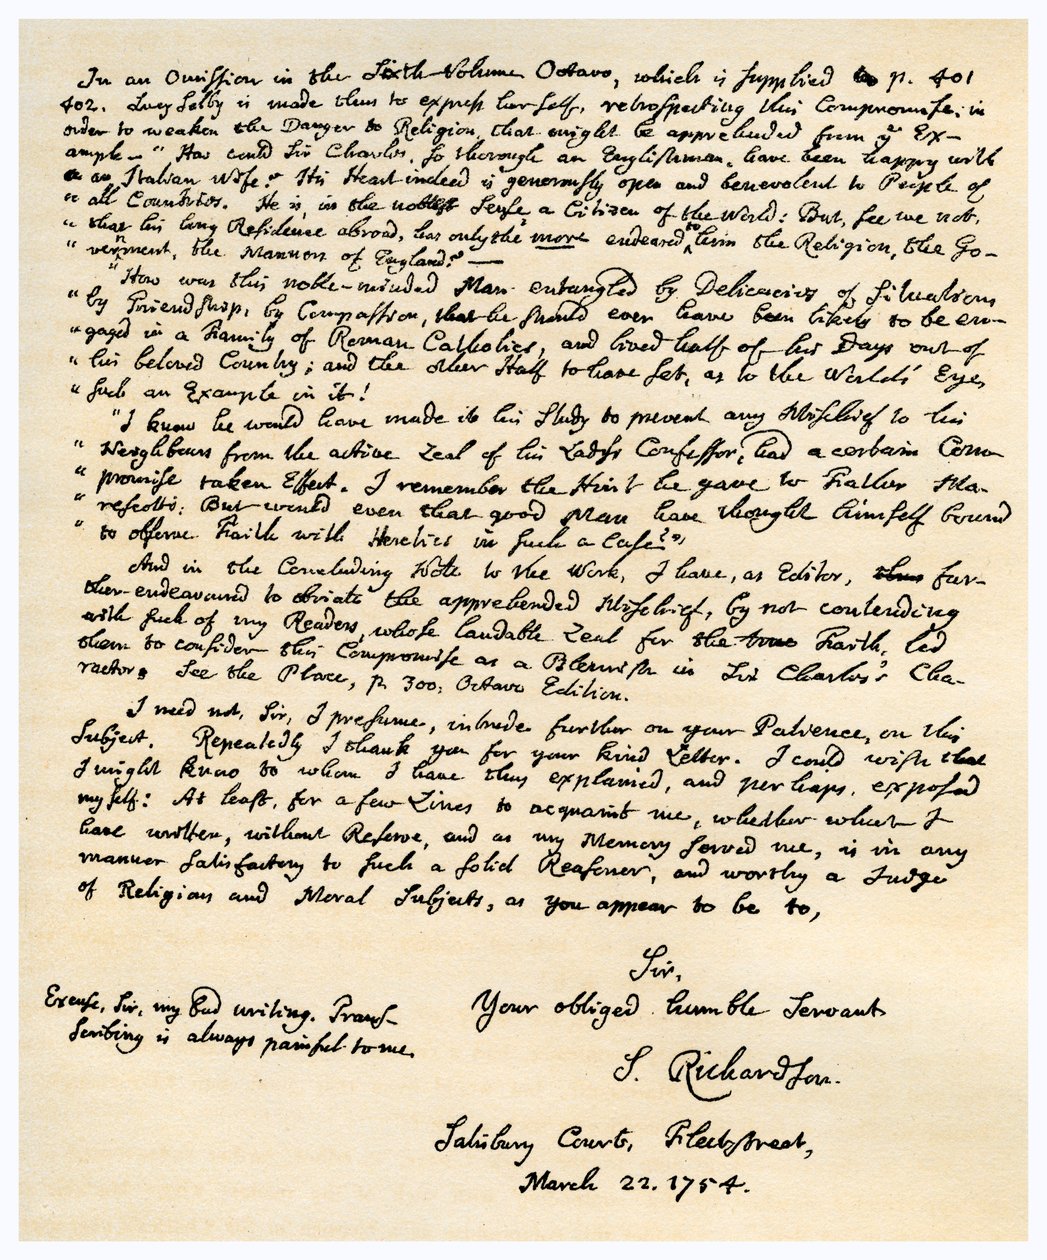 In an Omission in the Sixth Volume Octavo, which is supplied p. 401
402. Lucy Selby is made thus to express herself, retrospecting this Compromise; in
order to weaken the Danger to Religion, that might be apprehended from yͤ Ex-
ample — "How could Sir Charles, so thorough an Englishman, have been happy with
an Italian Wife? His Heart indeed is generously open and benevolent to People of
" all Countries. He is, in the noblest Sense, a Citizen of the World: But, see we not,
" that his long Residence abroad, has only the more endeared to him the Religion, the Go-
" vernment, the Manners of England? —
"How was this noble-minded Man entangled by Delicacies of Situation,
" by Friendship, by Compassion, that he should ever have been likely to be en-
" gaged in a Family of Roman Catholics, and lived half of his Days out of
" his beloved Country; and the other Half to have set, as to the World's Eye,
" such an Example in it!
"I know he would have made it his Study to prevent any Mischief to his
" Neighbours from the active Zeal of his Lady's Confessor, had a certain Com-
" promise taken Effect. I remember the Hint he gave to Father Ma-
" rescotti: But would even that good Man have thought himself bound
" to observe Faith with Heretics in such a Case?"
And in the Concluding Note to the Work, I have, as Editor, thus fur-
ther endeavoured to obviate the apprehended Mischief, by not contending
with such of my Readers, whose laudable Zeal for the true Faith, led
them to consider this Compromise as a Blemish in Sir Charles's Cha-
racter. See the Place, p. 300, Octavo Edition.
I need not, Sir, I presume, intrude further on your Patience, on this
Subject. Repeatedly I thank you for your kind Letter. I could wish that
I might know to whom I have thus explained, and perhaps, exposed
myself: At least, for a few Lines to acquaint me, whether what I
have written, without Reserve, and as my Memory served me, is in any
manner satisfactory to such a solid Reasoner, and worthy a Judge
of Religious and Moral Subjects, as you appear to be to,
Sir,
Your obliged humble Servant
S. Richardson.
Excuse, Sir, my bad writing. Trans-
scribing is always painful to me.
Salisbury Court, Fleetstreet,
March 22. 1754.